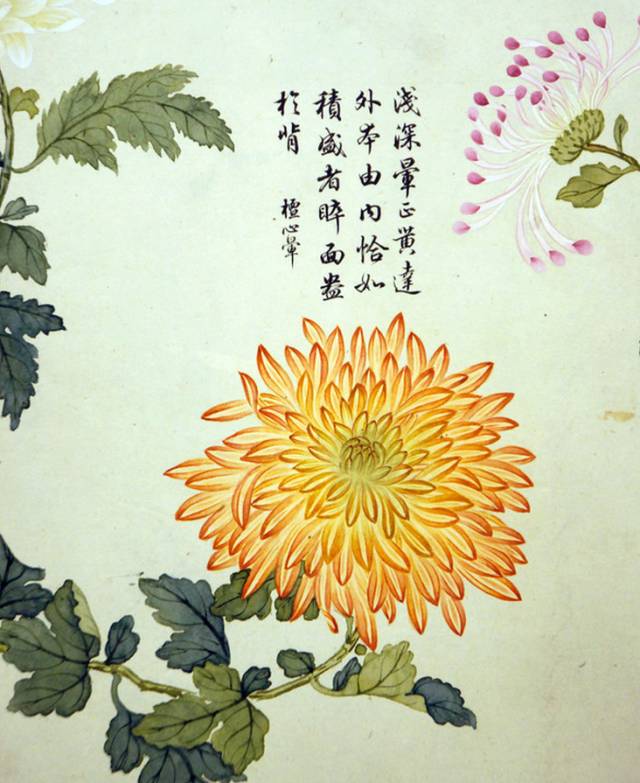 淺深暈正黃達
外本由內恰如
積盛者睟面盎
於背
檀心暈